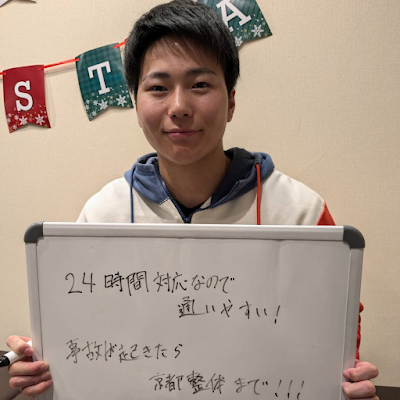 S T A
24時間対応なので
通いやすい!
事故が起きたら
京都整体まで!!!